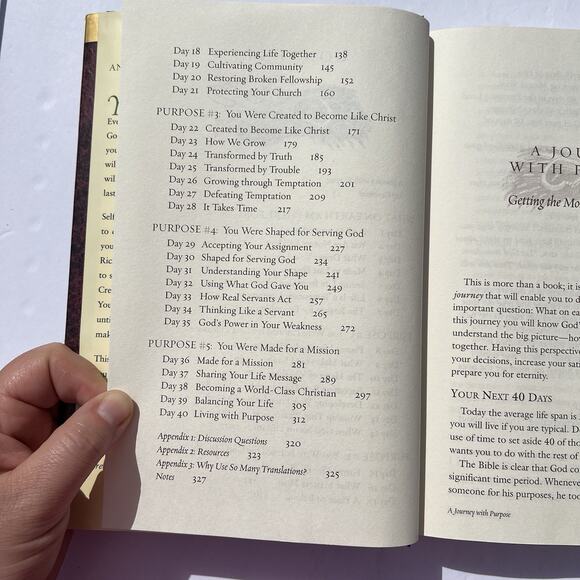 AN
Eve
Go
you
will
wil
last
Self
to
you
Ric
to s
Cre
You
unti
mak
This
Day 18 Experiencing Life Together 138
Day 19 Cultivating Community 145
Day 20 Restoring Broken Fellowship 152
Day 21 Protecting Your Church 160
PURPOSE #3: You Were Created to Become Like Christ
Day 22 Created to Become Like Christ 171
Day 23 How We Grow 179
Day 24 Transformed by Truth 185
Day 25 Transformed by Trouble 193
Day 26 Growing through Temptation 201
Day 27 Defeating Temptation 209
Day 28 It Takes Time 217
PURPOSE #4: You Were Shaped for Serving God
Day 29 Accepting Your Assignment 227
Day 30 Shaped for Serving God 234
Day 31 Understanding Your Shape 241
Day 32 Using What God Gave You 249
Day 33 How Real Servants Act 257
Day 34 Thinking Like a Servant 265
Day 35 God's Power in Your Weakness 272
PURPOSE #5: You Were Made for a Mission
Day 36 Made for a Mission 281
Day 37 Sharing Your Life Message 289
Day 38 Becoming a World-Class Christian 297
Day 39 Balancing Your Life 305
Day 40 Living with Purpose 312
Appendix 1: Discussion Questions 320
Appendix 2: Resources 323
Appendix 3: Why Use So Many Translations? 325
Notes 327
A JOU
WITH P
Getting the Mo
This is more than a book; it is
journey that will enable you to d
important question: What on ea
this journey you will know God'
understand the big picture—how
together. Having this perspectiv
your decisions, increase your sati
prepare you for eternity.
YOUR NEXT 40 DAYS
Today the average life span is
you will live if you are typical. Do
use of time to set aside 40 of tho
wants you to do with the rest of
The Bible is clear that God co
significant time period. Wheneve
someone for his purposes, he too
A Journey with Purpose